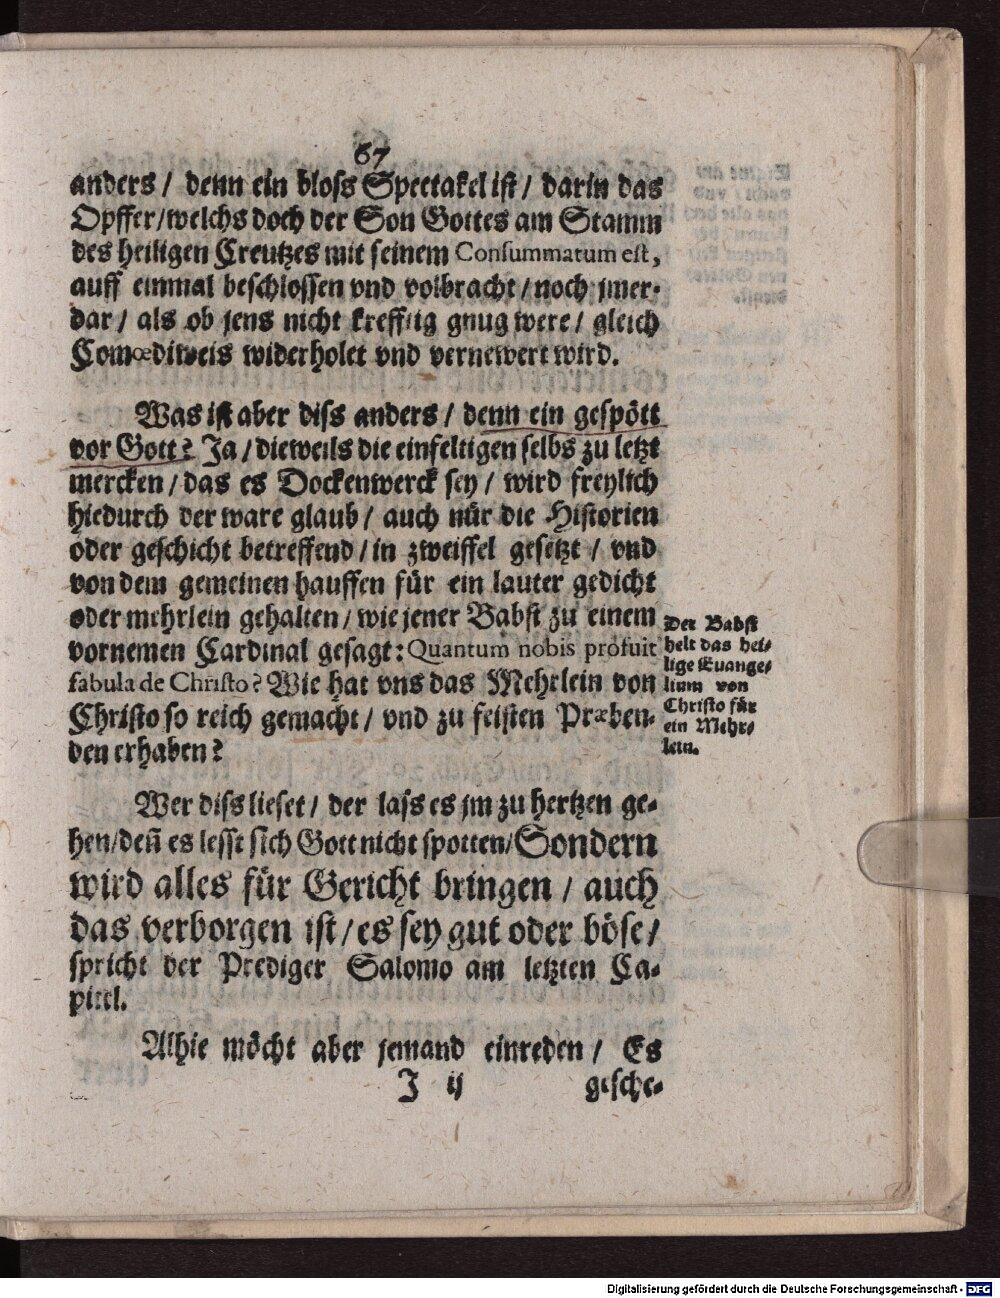 67
anders / denn ein bloss Spectakel ist / darin das
Opffer/welchs doch der Son Gottes am Stamm
des heiligen Creutzes mit seinem Consummatum est,
auff einmal beschlossen vnd volbracht / noch jmer-
dar / als ob jens nicht krefftig gnug were / gleich
Comœdiweis widerholet vnd vernewert wird.
Was ist aber diss anders / denn ein gespött
vor Gott? Ja / dieweils die einfeltigen selbs zu letzt
mercken / das es Dockenwerck sey / wird freylich
hiedurch der ware glaub / auch nür die Historien
oder geschicht betreffend / in zweiffel gesetzt / vnd
von dem gemeinen hauffen für ein lauter gedicht
oder mehrlein gehalten / wie jener Babst zu einem
vornemen Cardinal gesagt: Quantum nobis profuit
fabula de Christo? Wie hat vns das Mehrlein von
Christo so reich gemacht / vnd zu feisten Præben-
den erhaben?
Der Babst
helt das hei-
lige Euange-
lium von
Christo für
ein Mehr-
lein.
Wer diss lieset / der lass es jm zu hertzen ge-
hen/deñ es lesst sich Gott nicht spotten/Sondern
wird alles für Gericht bringen / auch
das verborgen ist / es sey gut oder böse /
spricht der Prediger Salomo am letzten Ca-
pittl.
Alhie möcht aber jemand einreden / Es
J ij gesche-
Digitalisierung gefördert durch die Deutsche Forschungsgemeinschaft - DFG